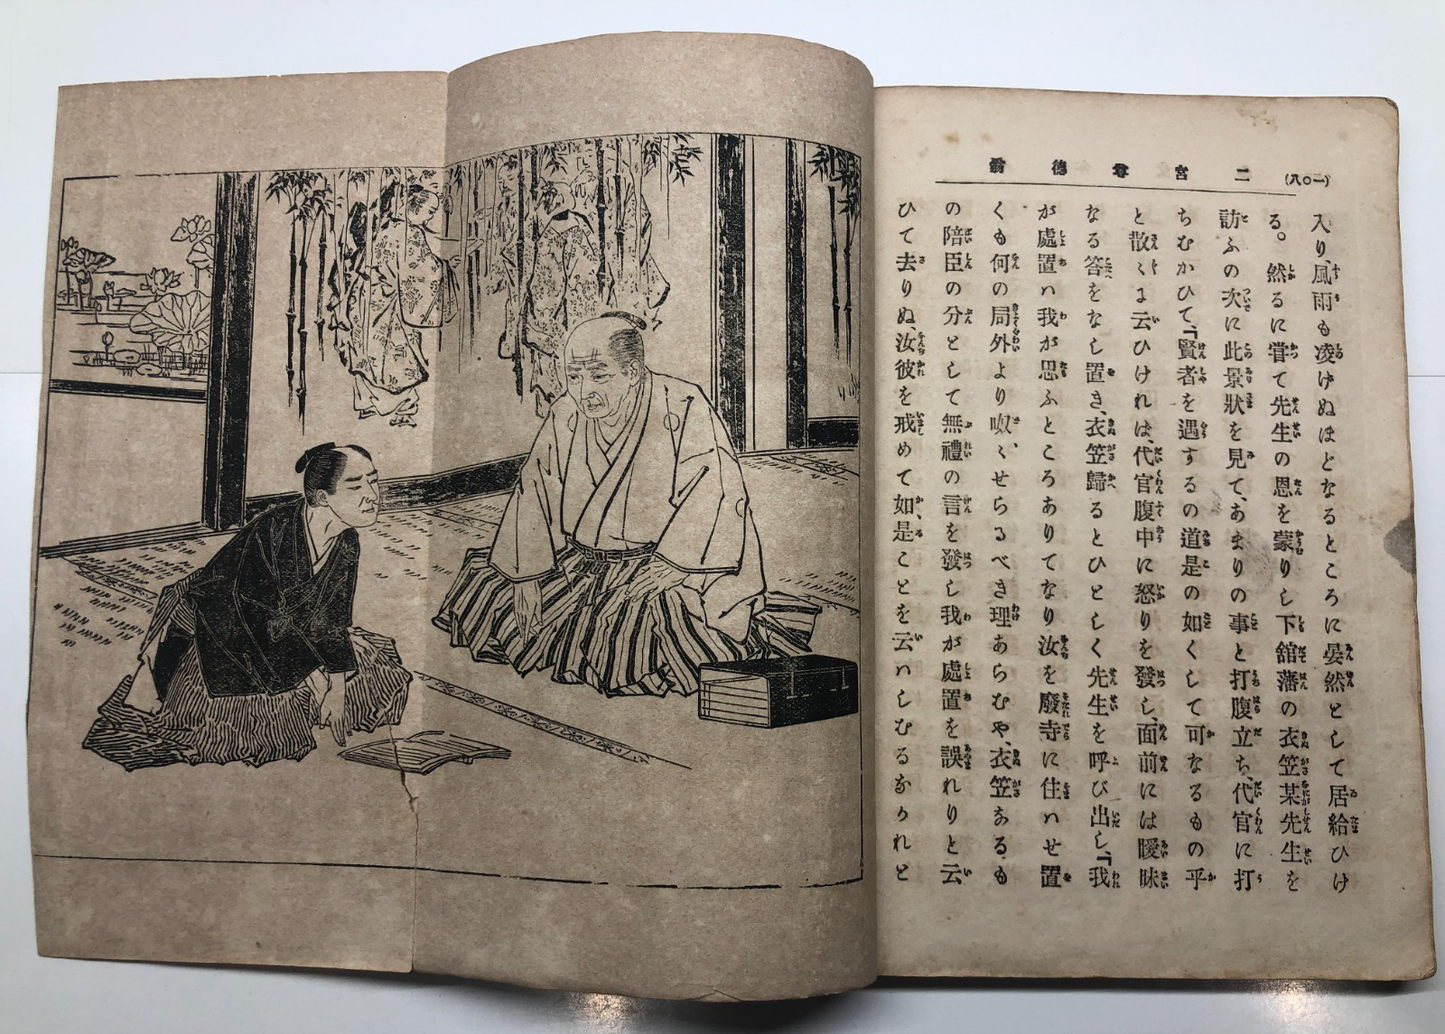 (一〇八) 二宮尊徳翁
入り、風雨も凌げぬほどなるところに晏然として居給ひけ
る。然るに甞て先生の恩を蒙りし下舘藩の衣笠某先生を
訪ふの次に此景狀を見て、あまりの事と打腹立ち、代官に打
ちむかひて、「賢者を遇するの道是の如くして可なるもの乎
と散〻に云ひけれは、代官腹中に怒りを發し、面前には曖昧
なる答をなし置き、衣笠歸るとひとしく先生を呼び出し、「我
が處置ハ我が思ふところありてなり汝を廢寺に住ハせ置
くも何の局外より呶〻せらるべき理あらむや、衣笠あるも
の陪臣の分として無禮の言を發し我が處置を誤れりと云
ひて去りぬ、汝彼を戒めて如、是ことを云ハしむるなかれと